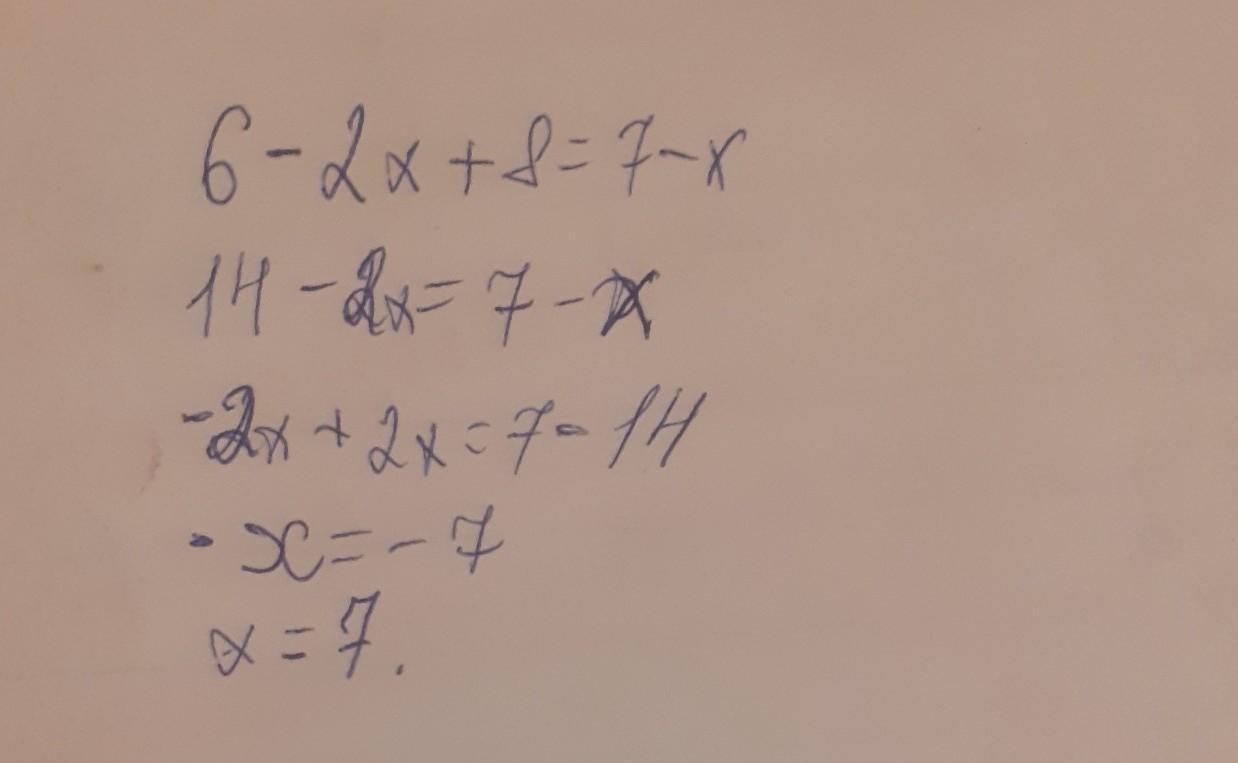 6 - 2x + 8 = 7 - x
14 - 2x = 7 - x
-2x + 2x = 7 - 14
- x = - 7
x = 7.